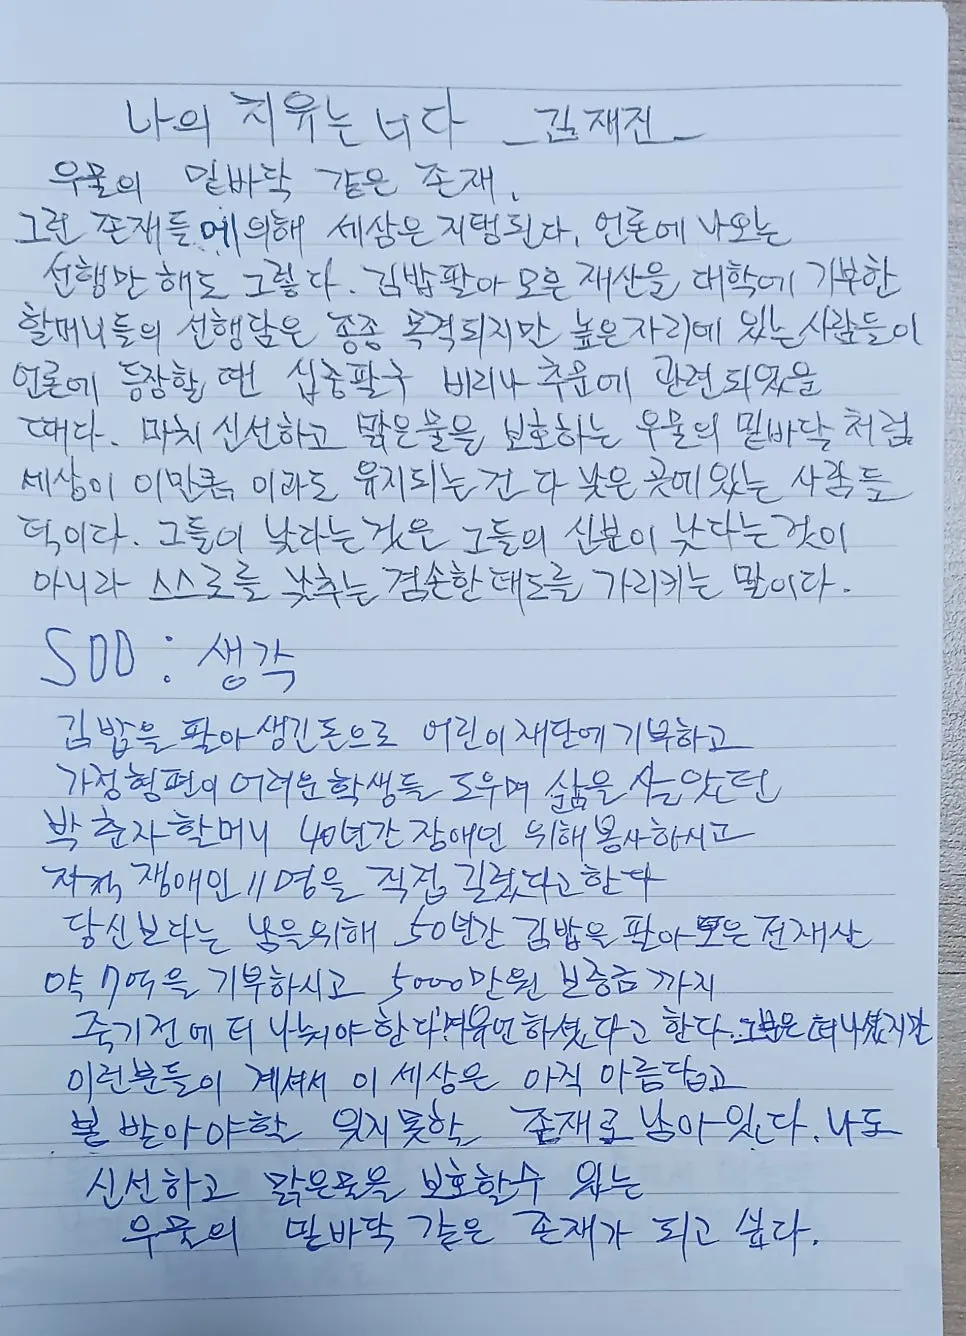 나의 치유는 너다 _김재진_
우물의 밑바닥 같은 존재.
그런 존재들에 의해 세상은 지탱된다. 언론에 나오는
선행만 해도 그렇다. 김밥팔아 모은 재산을 대학에 기부한
할머니들의 선행담은 종종 목격되지만 높은자리에 있는 사람들이
언론에 등장할 땐 십중팔구 비리나 추문에 관련되었을
때다. 마치 신선하고 맑은물을 보호하는 우물의 밑바닥처럼
세상이 이만큼 이라도 유지되는건 다 낮은 곳에있는 사람들
덕이다. 그들이 낮다는것은 그들의 신분이 낮다는것이
아니라 스스로를 낮추는 겸손한태도를 가리키는 말이다.
SOO : 생각
김밥을 팔아 생긴돈으로 어린이재단에기부하고
가정형편이 어려운학생들 도우며 삶을 살았던
박춘자할머니 40년간 장애인 위해봉사하시고
장애인 11명을 직접 길렀다고한다
당신보다는 남을위해 50년간 김밥을 팔아 모은 전재산
약 7억을 기부하시고 5000만원 보증금 까지
죽기전에 더 나눠야 한다며유언하셨다고 한다. 그분은 떠나셨지만
이런분들이 계셔서 이 세상은 아직 아름답고
본 받아야할 잊지못할 존재로 남아있다. 나도
신선하고 맑은물을 보호할수 있는
우물의 밑바닥 같은 존재가 되고 싶다.